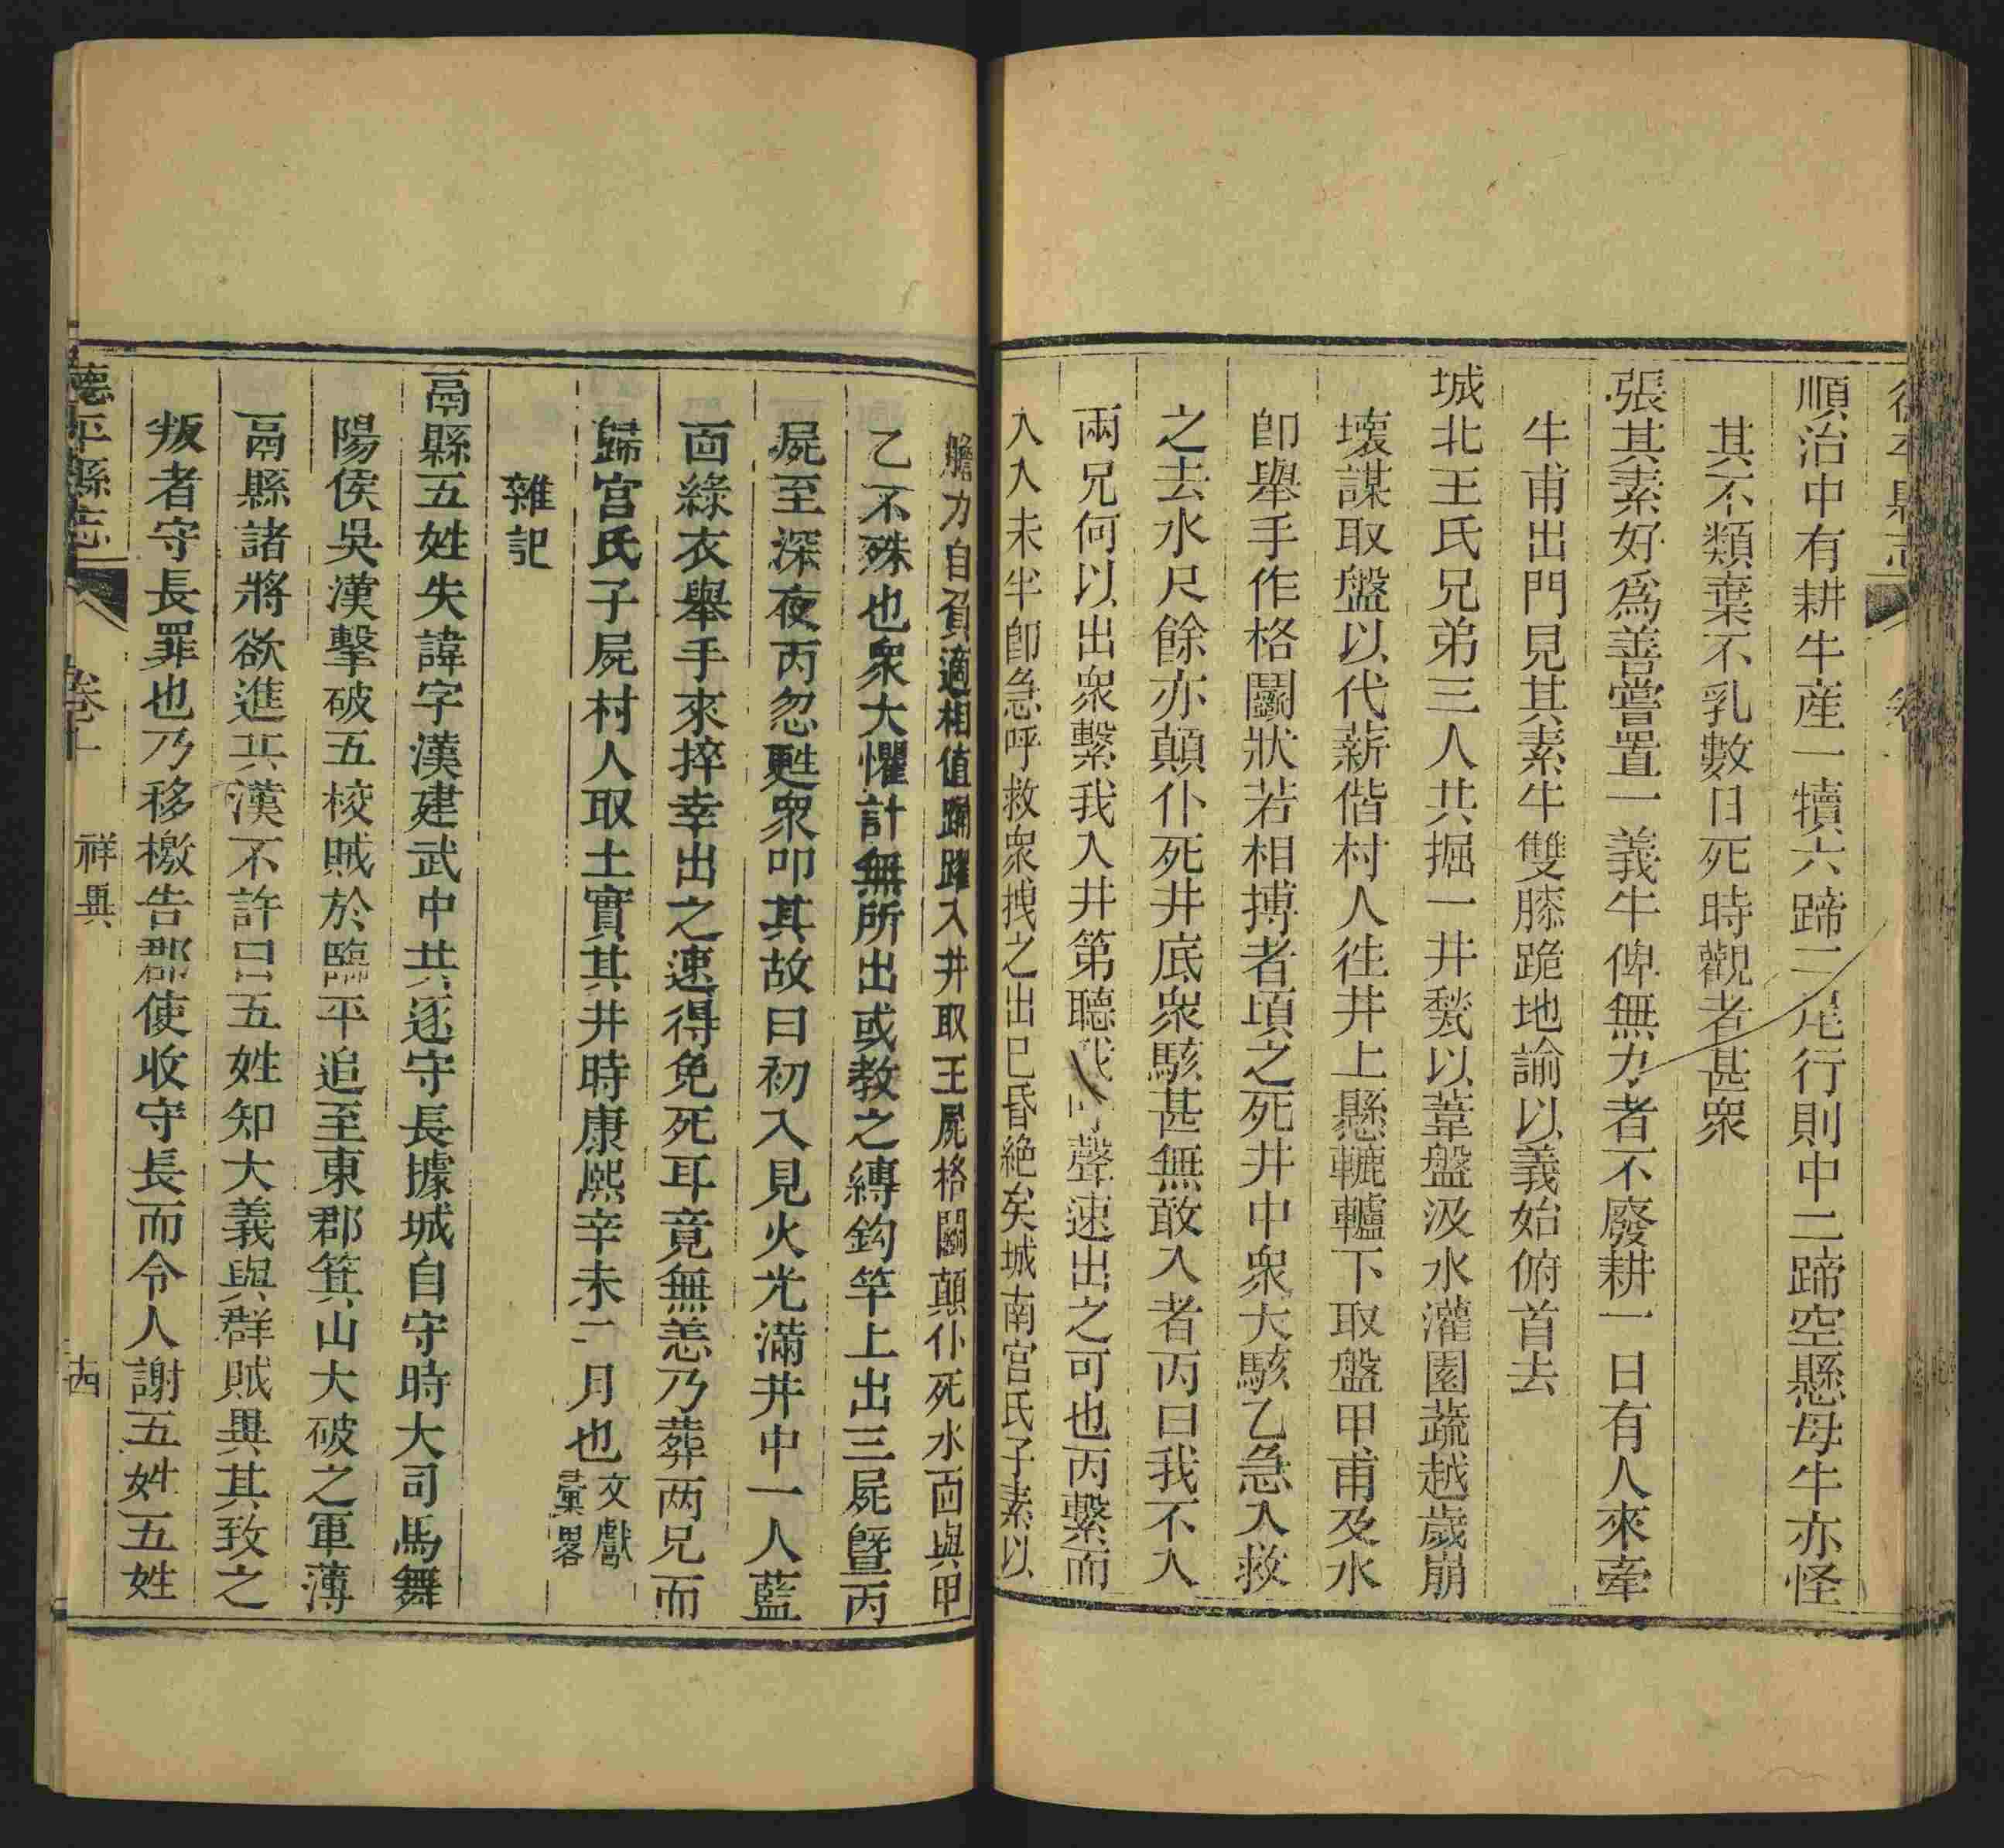 順治中有耕牛産一犢六蹄二尾行則中二蹄空懸母牛亦怪
其不類棄不乳數日死時觀者甚衆
張其素好爲善嘗置一義牛俾無力者不廢耕一日有人來牽
牛甫出門見其素牛雙膝跪地諭以義始俯首去
城北王氏兄弟三人共掘一井甃以葦盤汲水灌園蔬越歲崩
壞謀取盤以代薪偕村人徃井上懸轆轤下取盤甲甫及水
卽舉手作格鬭狀若相搏者頃之死井中衆大駭乙急入救
之去水尺餘亦顛仆死井底衆駭甚無敢入者丙曰我不入
兩兄何以出衆繫我入井第聽我聲速出之可也丙繫而
入入未半卽急呼救衆拽之出已昏絶矣城南宮氏子素以
膽力自負適相值踴躍入井取王屍格鬭顛仆死水面與甲
乙不殊也衆大懼計無所出或教之縛鈎竿上出三屍曁丙
屍至深夜丙忽甦衆叩其故曰初入見火光滿井中一人藍
面綠衣舉手來捽幸出之速得免死耳竟無恙乃葬兩兄而
歸宮氏子屍村人取土實其井時康熙辛未二月也文獻彙畧
雜記
鬲縣五姓失諱字漢建武中共逐守長據城自守時大司馬舞
陽侯吳漢擊破五校賊於臨平追至東郡箕山大破之軍薄
鬲縣諸將欲進兵漢不許曰五姓知大義與群賊異其致之
叛者守長罪也乃移檄告郡使收守長而令人謝五姓五姓
德平縣志
卷十
祥異
十四